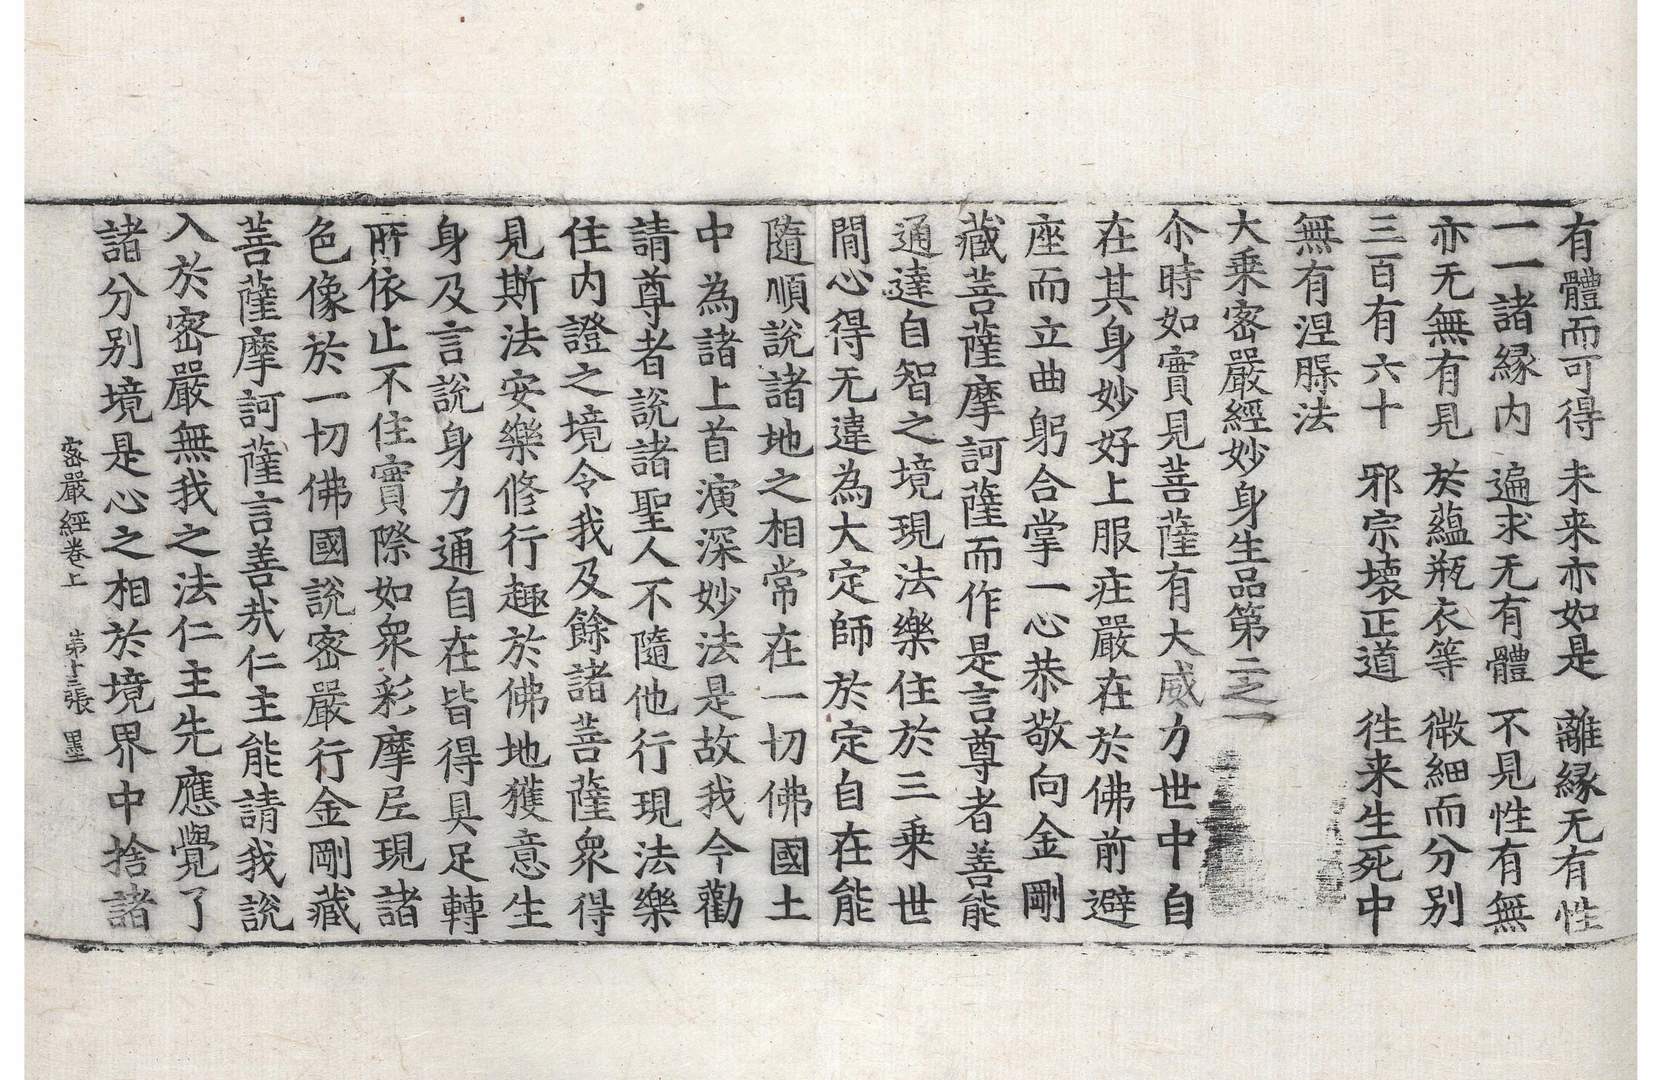 有體而可得　未来亦如是　離縁无有性
一一諸縁内　遍求无有體　不見性有無
亦无無有見　於蘊瓶衣等　微細而分别
三百有六十　邪宗壊正道　徃来生死中
無有涅槃法
大乗密嚴經妙身生品第二之一
尒時如實見菩薩有大威力世中自
在其身妙好上服疘嚴在於佛前避
座而立曲躬合掌一心恭敬向金剛
藏菩薩摩訶薩而作是言尊者善能
通達自智之境現法樂住於三乗世
間心得无違為大定師於定自在能
隨順說諸地之相常在一切佛國土
中為諸上首演深妙法是故我今勸
請尊者說諸聖人不隨他行現法樂
住内證之境令我及餘諸菩薩衆得
見斯法安樂修行趣於佛地獲意生
身及言說身力通自在皆得具足轉
所依止不住實際如衆彩摩尼現諸
色像於一切佛國說密嚴行金剛藏
菩薩摩訶薩言善哉仁主能請我說
入於密嚴無我之法仁主先應覺了
諸分别境是心之相於境界中捨諸
密嚴經卷上　第十三張　墨